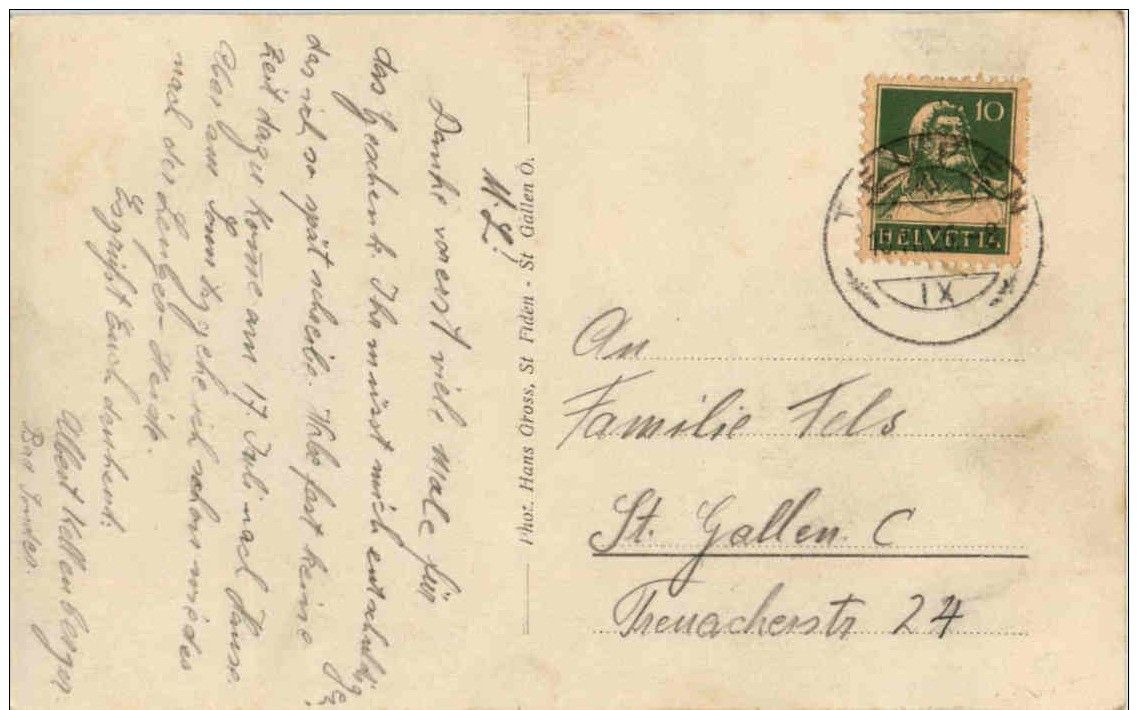 M. L!
Danke vorerst viele Male für
das Geschenk. Ihr müsst mich entschuldigen
das ich so spät schreibe. Habe fast keine
Zeit dazu. Komme am 17 Juli nach Hause.
Aber am Sonntag gehe ich schon wieder
nach der Lenzer-Heide.
Es grüsst Euch dankend:
Albert Kellenberger
Bad
Phot. Hans Gross, St Fiden - St Gallen O.
10
HELVETIA
IX
An
Familie Fels
St. Gallen. C
Treuackerstr 24